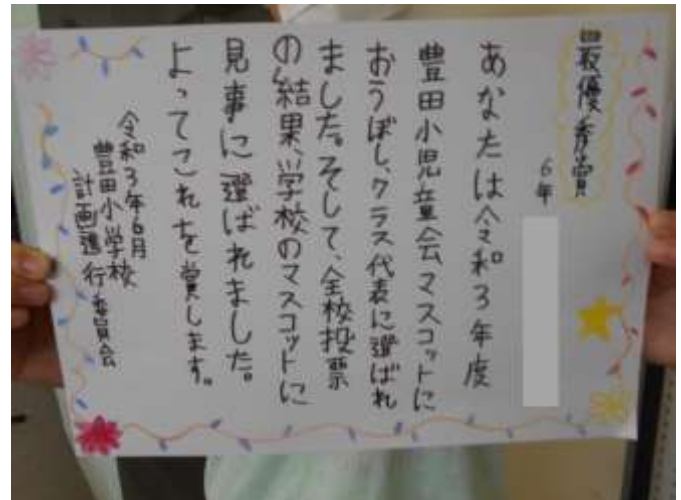 最優秀賞
6年
あなたは令和3年度
豊田小児童会マスコットに
おうぼし、クラス代表に選ばれ
ました。そして、全校投票
の結果、学校のマスコットに
見事に選ばれました。
よってこれを賞します。
令和3年6月
豊田小学校
計画進行委員会